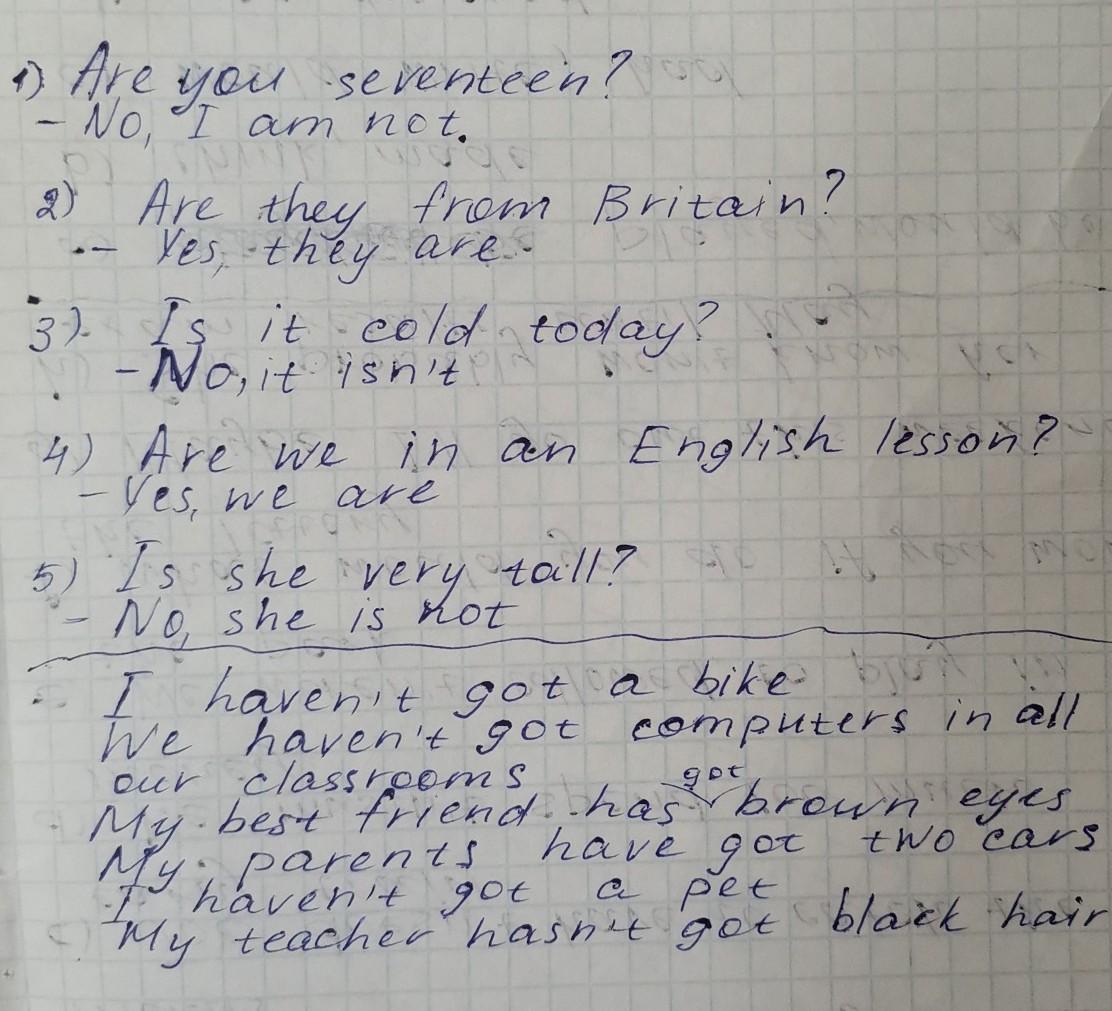 1) Are you seventeen?
- No, I am not.
2) Are they from Britain?
- Yes, they are.
3) Is it cold today?
- No, it isn't
4) Are we in an English lesson?
- Yes, we are
5) Is she very tall?
- No, she is not
I haven't got a bike
We haven't got computers in all
our classrooms
got
My best friend has brown eyes
My parents have got two cars
I haven't got a pet
My teacher hasn't got black hair